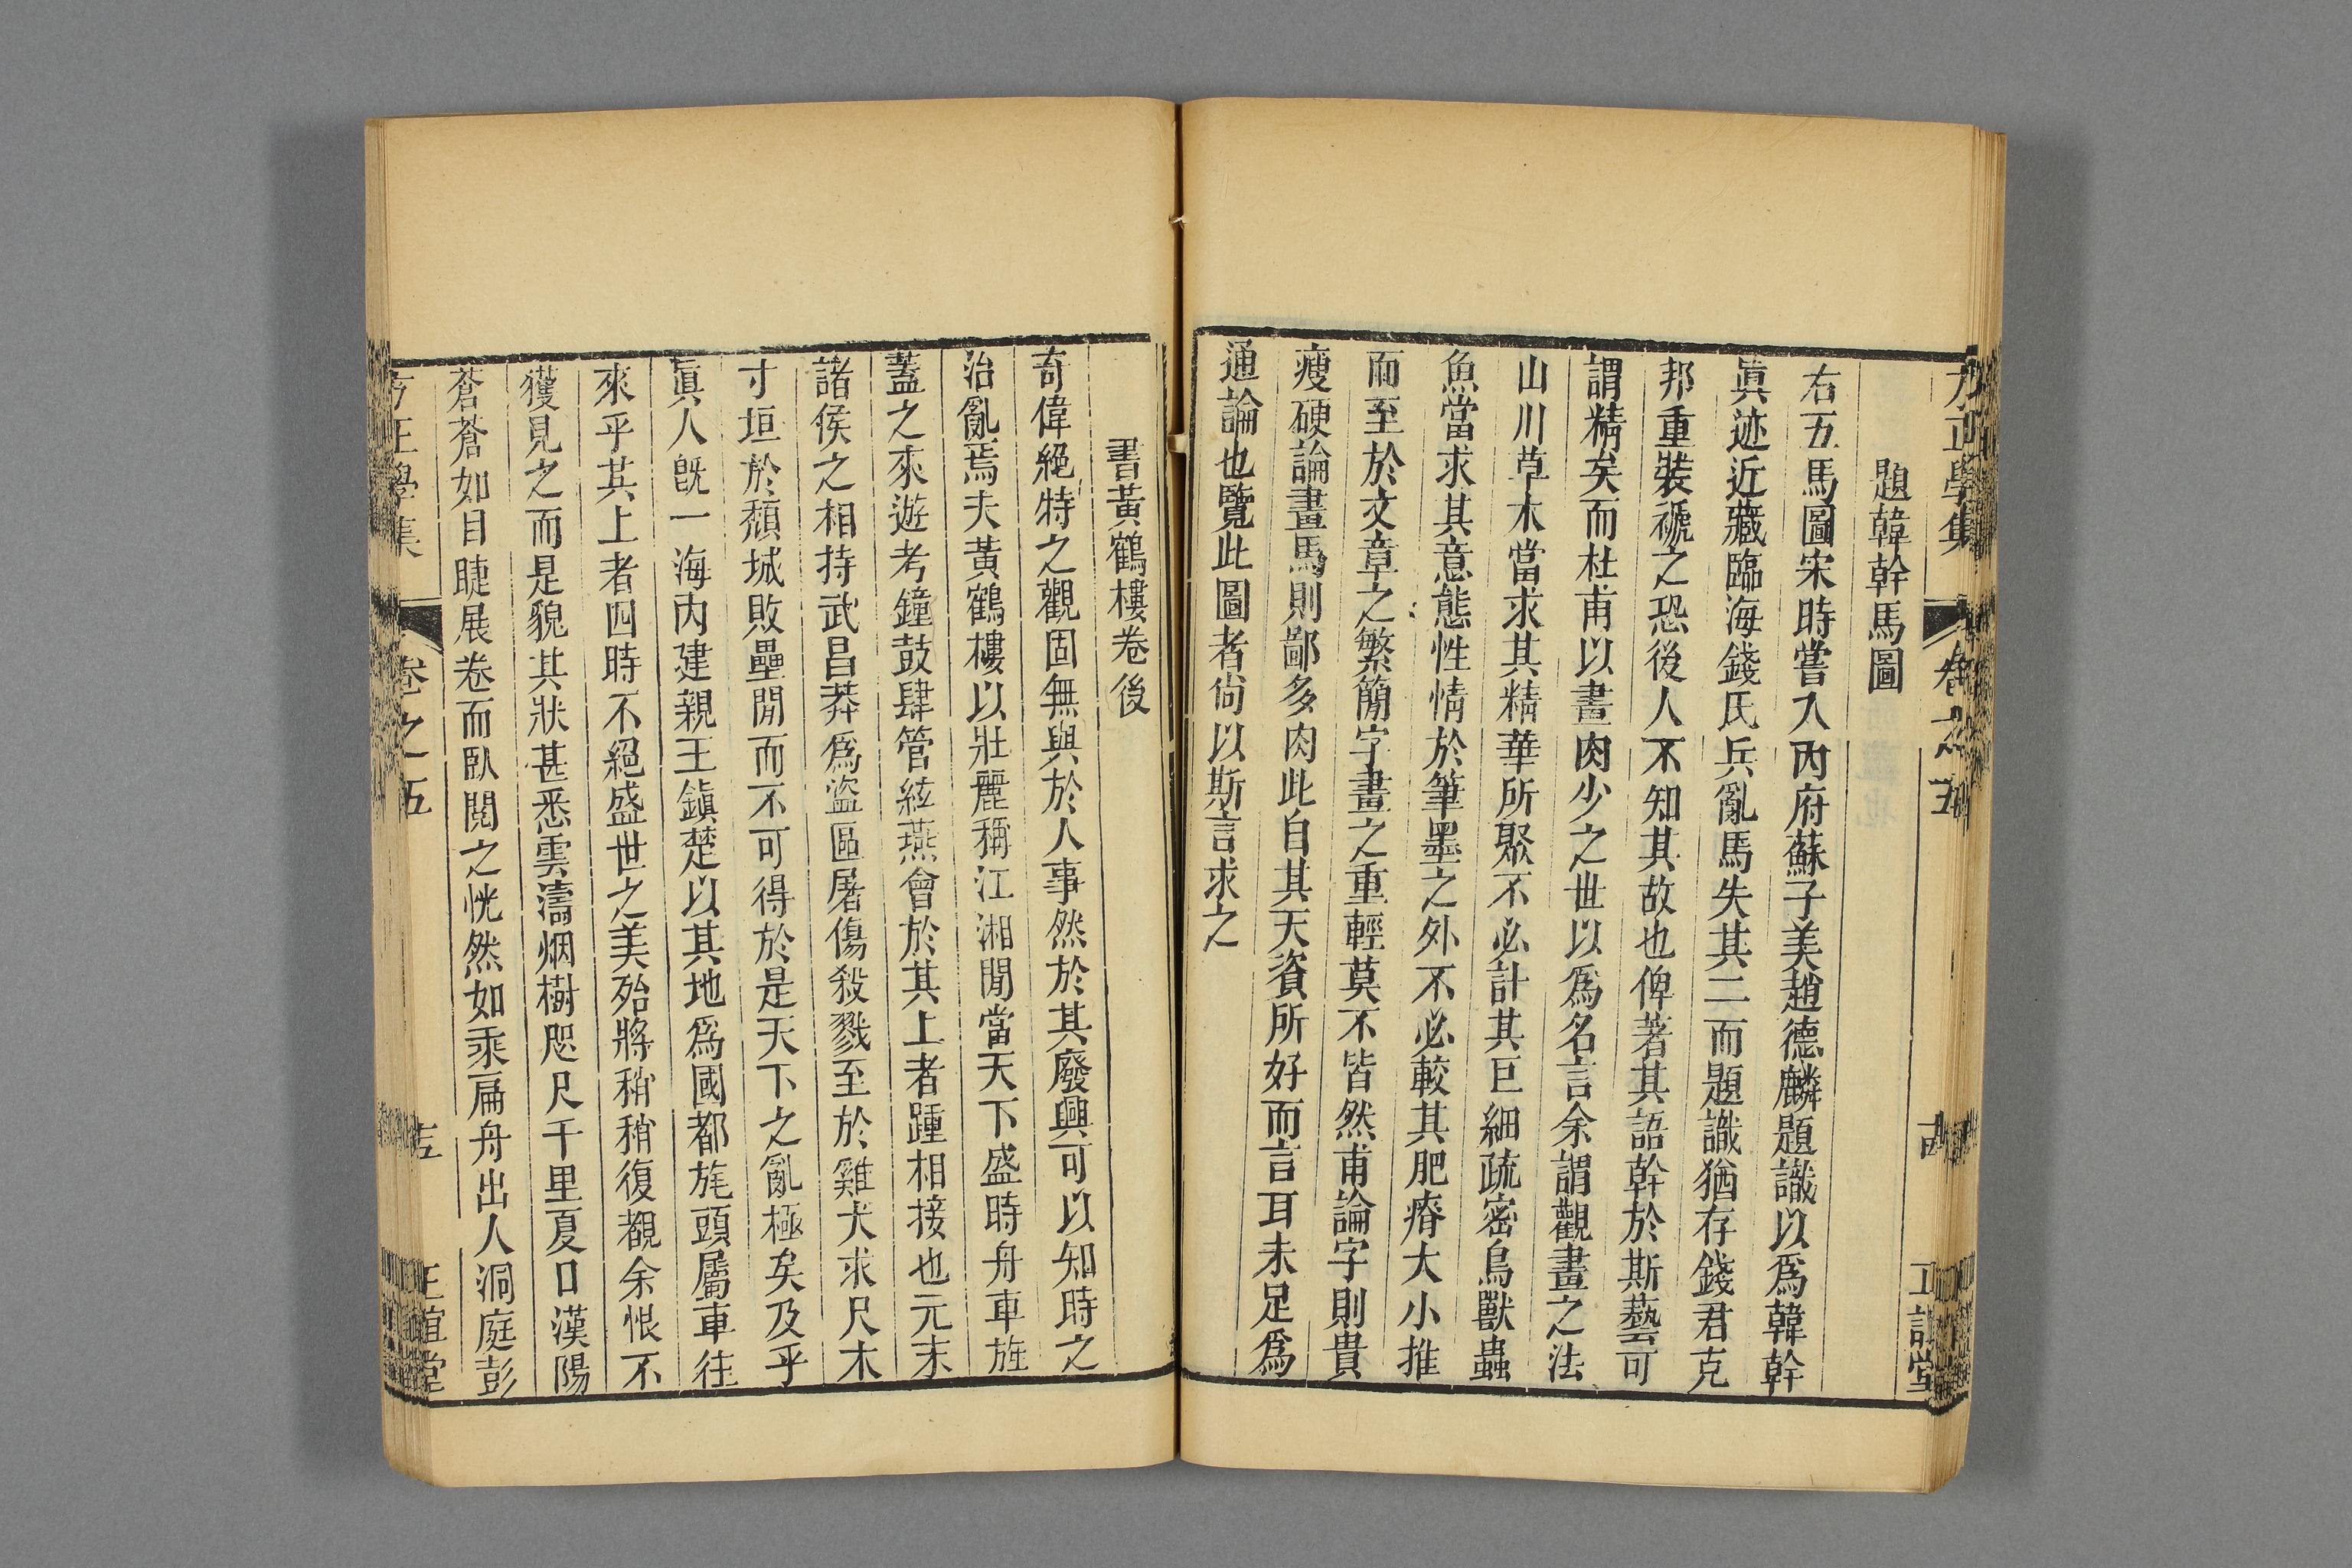 方正學集
卷之五
題韓幹馬圖
右五馬圖宋時嘗入內府蘇子美趙德麟題識以爲韓幹
眞迹近藏臨海錢氏兵亂馬失其二而題識猶存錢君克
邦重裝褫之恐後人不知其故也俾著其語幹於斯藝可
謂精矣而杜甫以畫肉少之世以爲名言余謂觀畫之法
山川草木當求其精華所聚不必計其巨細疏密鳥獸蟲
魚當求其意態性情於筆墨之外不必較其肥瘠大小推
而至於文章之繁簡字畫之重輕莫不皆然甫論字則貴
瘦硬論畫馬則鄙多肉此自其天資所好而言耳未足爲
通論也覽此圖者尙以斯言求之
書黃鶴樓卷後
奇偉絕特之觀固無與於人事然於其廢興可以知時之
治亂焉夫黃鶴樓以壯麗稱江湘閒當天下盛時舟車旌
蓋之來遊考鐘鼓肆管絃燕會於其上者踵相接也元末
諸侯之相持武昌莽爲盜區屠傷殺戮至於雞犬求尺木
寸垣於頹城敗壘閒而不可得於是天下之亂極矣及乎
眞人旣一海內建親王鎭楚以其地爲國都旄頭屬車往
來乎其上者四時不絕盛世之美殆將稍稍復覩余恨不
獲見之而是貌其狀甚悉雲濤烟樹咫尺千里夏口漢陽
蒼蒼如目睫展卷而臥閱之恍然如乘扁舟出人洞庭彭
方正學集
卷之五
正誼堂